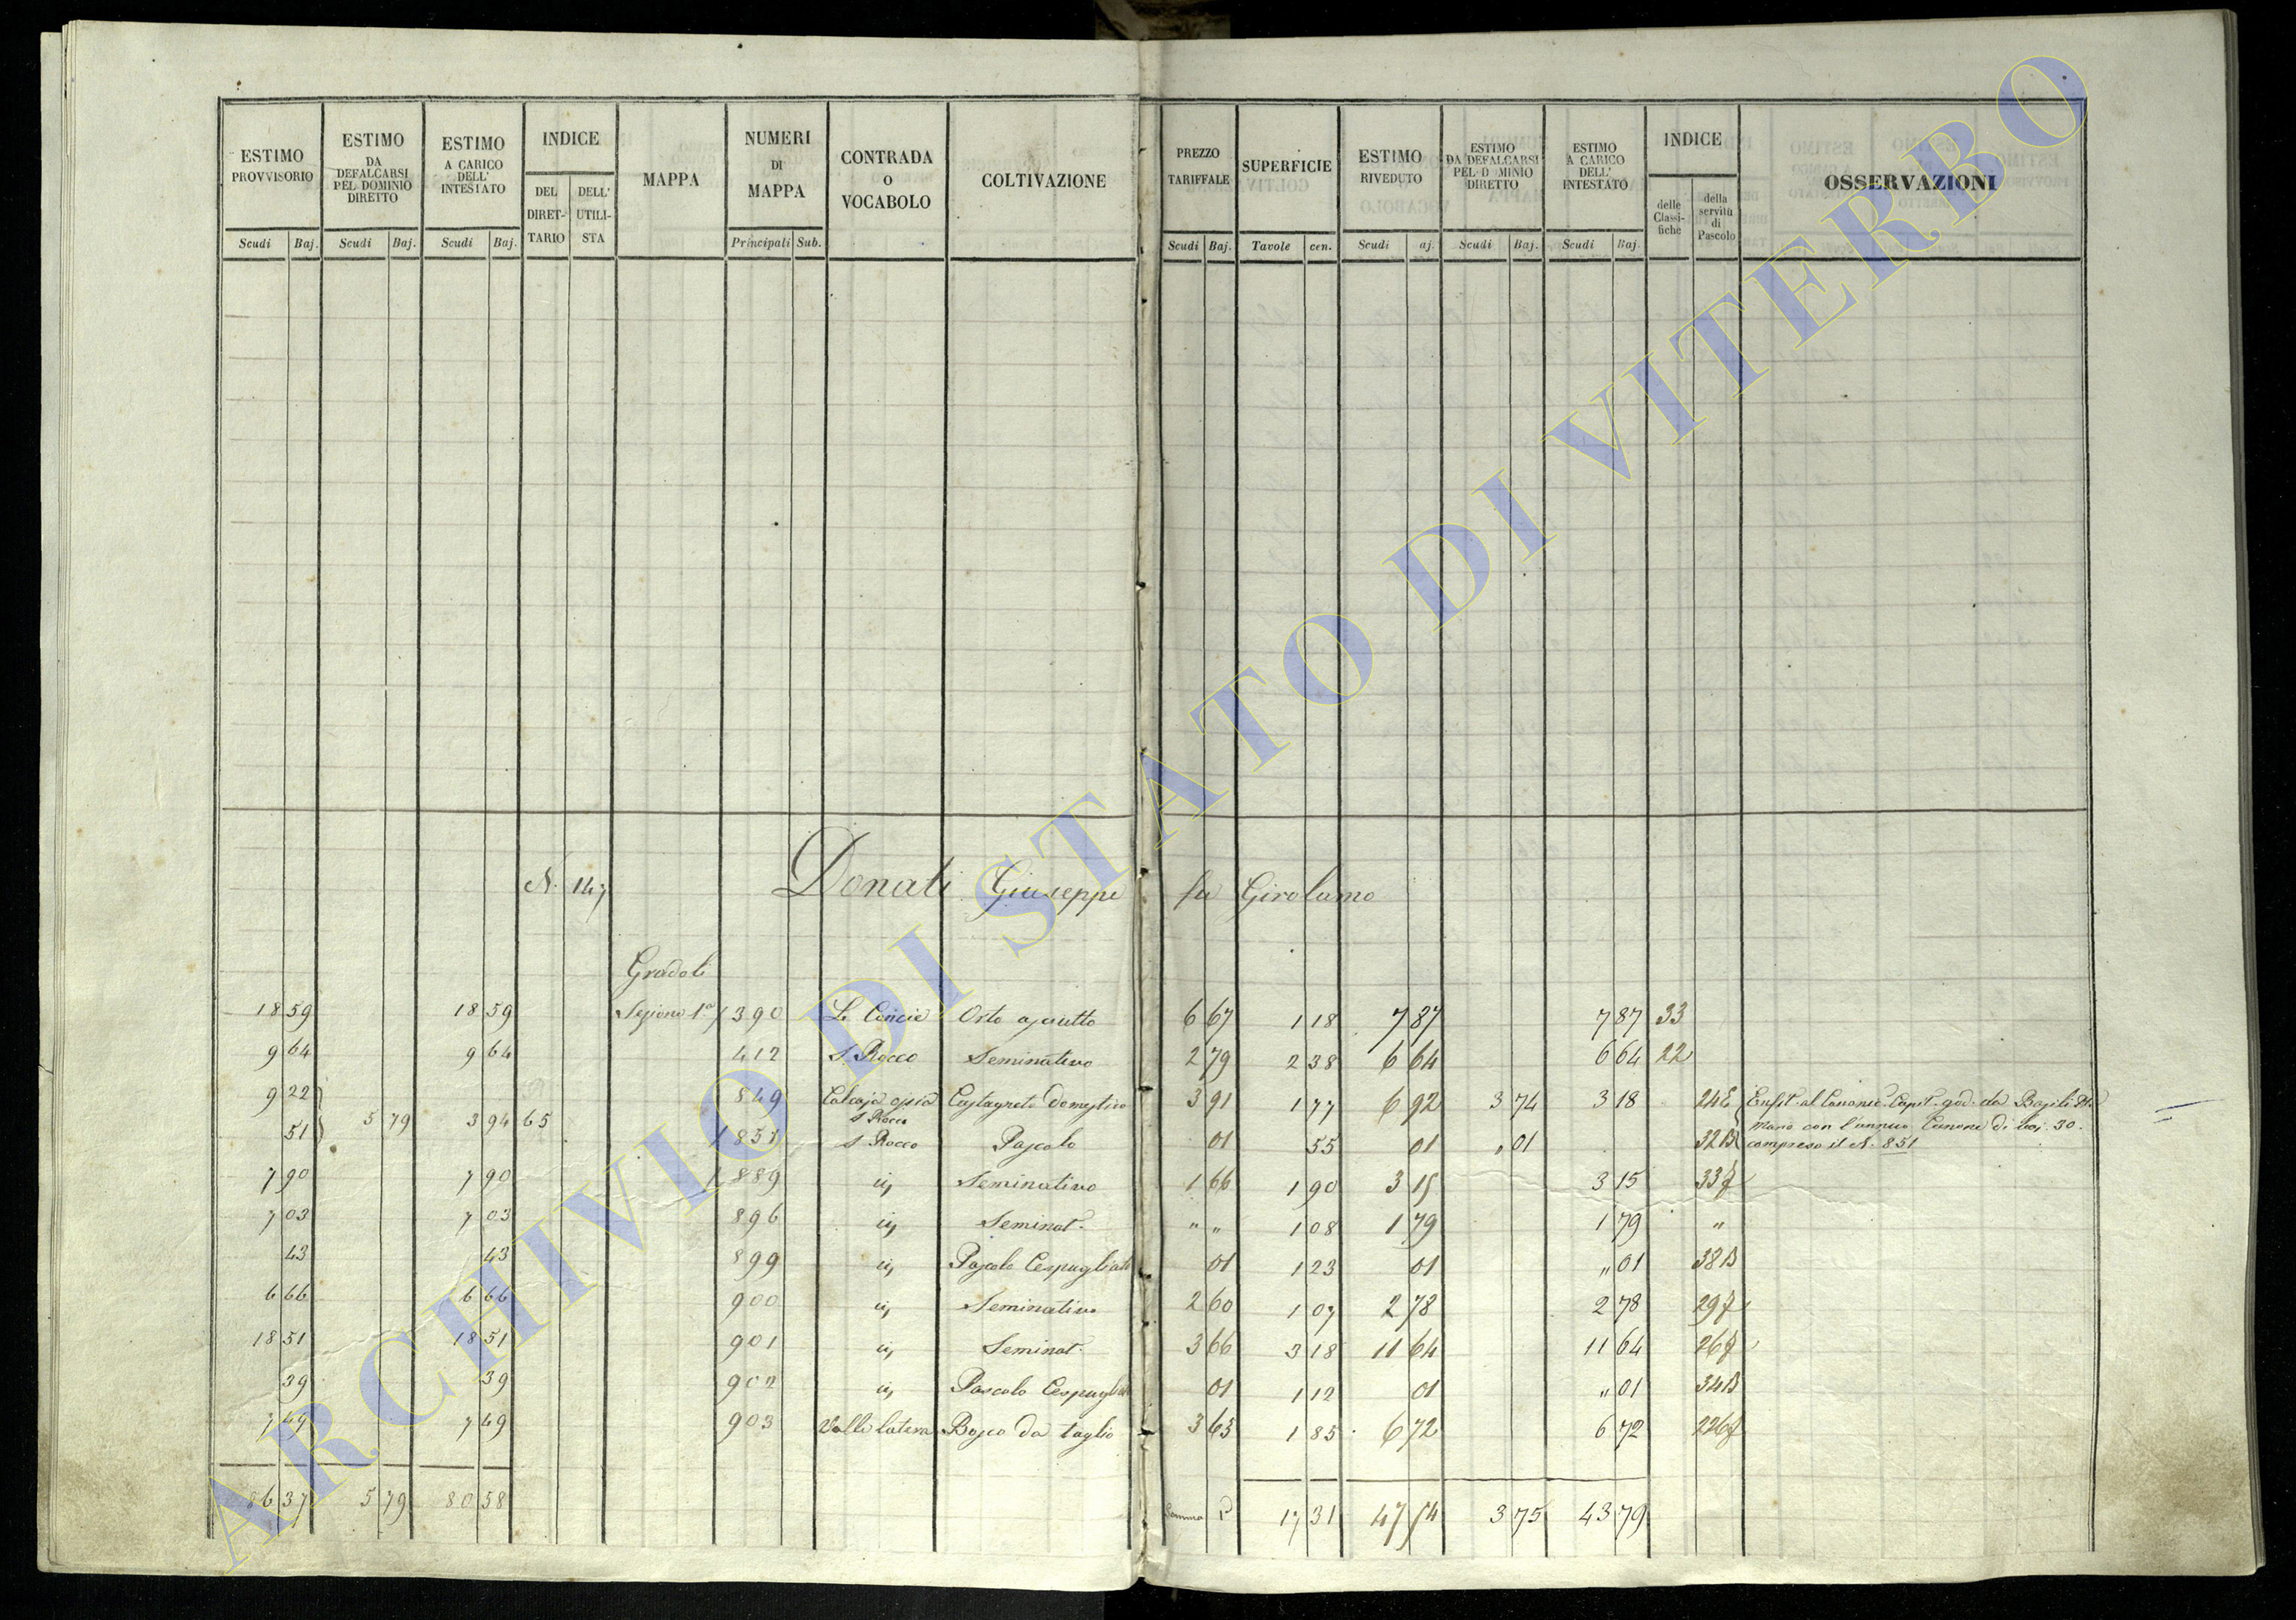 ESTIMO PROVVISORIO | ESTIMO DA DEFALCARSI PEL DOMINIO DIRETTO | ESTIMO A CARICO DELL' INTESTATO | INDICE | MAPPA | NUMERI DI MAPPA | CONTRADA O VOCABOLO | COLTIVAZIONE | PREZZO TARIFFALE | SUPERFICIE | ESTIMO RIVEDUTO | ESTIMO DA DEFALCARSI PEL D MINIO DIRETTO | ESTIMO A CARICO DELL' INTESTATO | INDICE | OSSERVAZIONI
DEL DIRET-TARIO | DELL' UTILI-STA | delle Classi-fiche | della servitù di Pascolo
Scudi | Baj. | Scudi | Baj. | Scudi | Baj. | Principali | Sub. | Scudi | Baj. | Tavole | cen. | Scudi | aj. | Scudi | Baj. | Scudi | Baj.
N. 147 Donati Giuseppe fu Girolamo
Gradoli
18 59 | 18 59 | Sezione 1a | 390 | Le Concie | Orto asciutto | 6 67 | 1 18 | 7 87 | 7 87 | 33
9 64 | 9 64 | 412 | S. Rocco | Seminativo | 2 79 | 2 38 | 6 64 | 6 64 | 22
9 22 | 849 | Calcaja ossia S. Rocco | Castagneto domestico | 3 91 | 1 77 | 6 92 | 3 74 | 3 18 | 24E | Enfit. al Canonic. Capit. god. da Basili
51 | 5 79 | 3 94 | 65 | 851 | S. Rocco | Pascolo | 01 | 55 | 01 | " 01 | 32B | con l'annuo Canone di baj. 30.
compreso il N. 851
7 90 | 7 90 | 889 | id | Seminativo | 1 66 | 1 90 | 3 15 | 3 15 | 33
7 03 | 7 03 | 896 | id | Seminat. | " " | 1 08 | 1 79 | 1 79 | "
43 | 43 | 899 | id | Pascolo Cespugliato | 01 | 1 23 | 01 | " 01 | 38B
6 66 | 6 66 | 900 | id | Seminativo | 2 60 | 1 07 | 2 78 | 2 78 | 29
18 51 | 18 51 | 901 | id | Seminat. | 3 66 | 3 18 | 11 64 | 11 64 | 26
39 | 39 | 902 | id | Pascolo Cespugliat | 01 | 1 12 | 01 | " 01 | 34B
7 49 | 7 49 | 903 | Valle latera | Bosco da taglio | 3 63 | 1 85 | 6 72 | 6 72 | 226
86 37 | 5 79 | 80 58 | Somma | 17 31 | 47 54 | 3 75 | 43 79
ARCHIVIO DI STATO DI VITERBO